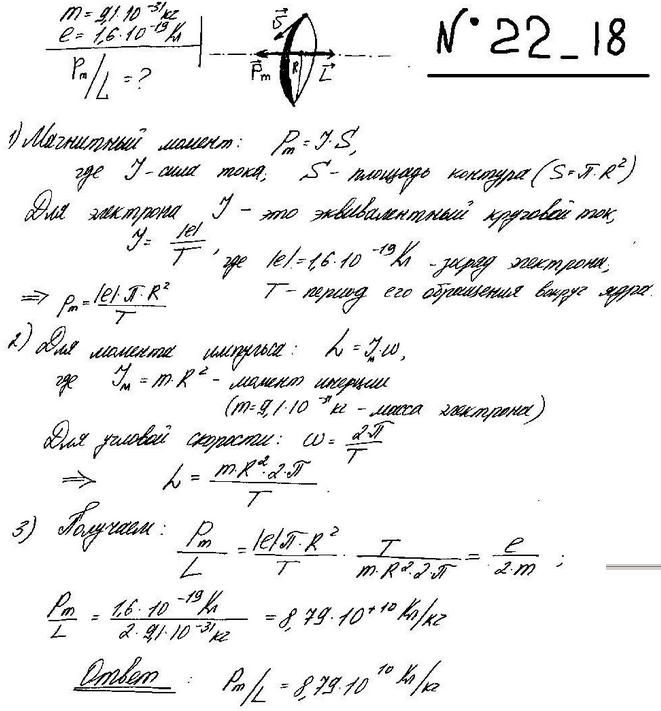 m = 9,1·10⁻³¹ кг
e = 1,6·10⁻¹⁹ Кл
Pm/L = ?
S
Pm
R
L
N° 22_18
1) Магнитный момент: Pm = I·S,
где I - сила тока; S - площадь контура (S = π·R²)
Для электрона I - это эквивалентный круговой ток,
I = |e|/T, где |e| = 1,6·10⁻¹⁹ Кл - заряд электрона;
T - период его обращения вокруг ядра.
=> pm = |e|·π·R²/T
2) Для момента импульса: L = Iм ω,
где Iм = m·R² - момент инерции
(m = 9,1·10⁻³¹ кг - масса электрона)
Для угловой скорости: ω = 2·π/T
=> L = m·R²·2·π/T
3) Получаем: Pm/L = |e|π·R²/T · T/m·R²·2·π = e/2·m ;
Pm/L = 1,6·10⁻¹⁹ Кл/2·9,1·10⁻³¹ кг = 8,79·10⁺¹⁰ Кл/кг
Ответ : Pm/L = 8,79·10¹⁰ Кл/кг